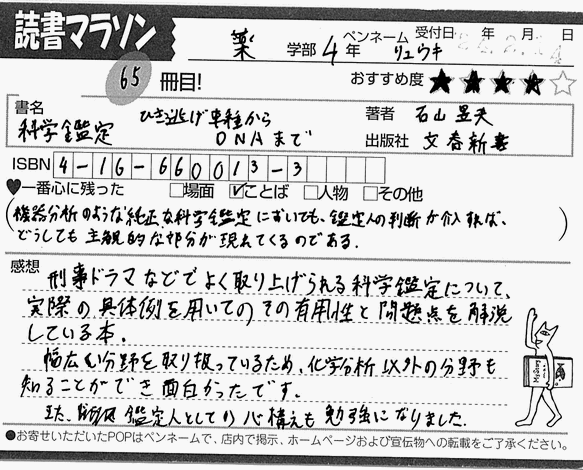 読書マラソン
薬 学部 4年 ペンネーム リュウキ 受付日 年 月 日
65 冊目! おすすめ度 ★★★★☆
書名 科学鑑定 ひき逃げ車種からDNAまで
著者 石山昱夫
出版社 文春新書
ISBN 4-16-660013-3
♥一番心に残った □場面 ☑ことば □人物 □その他
(機器分析のような純正な科学鑑定においても、鑑定人の判断が介入すれば、
どうしても主観的な部分が現れてくるのである。)
感想
刑事ドラマなどでよく取り上げられる科学鑑定について、
実際の具体例を用いてのその有用性と問題点を解説
している本。
幅広い分野を取り扱っているため、化学分析以外の分野も
知ることができ面白かったです。
また、鑑定人としての心構えも勉強になりました。
●お寄せいただいたPOPはペンネームで、店内で掲示、ホームページおよび宣伝物への転載をご了承ください。